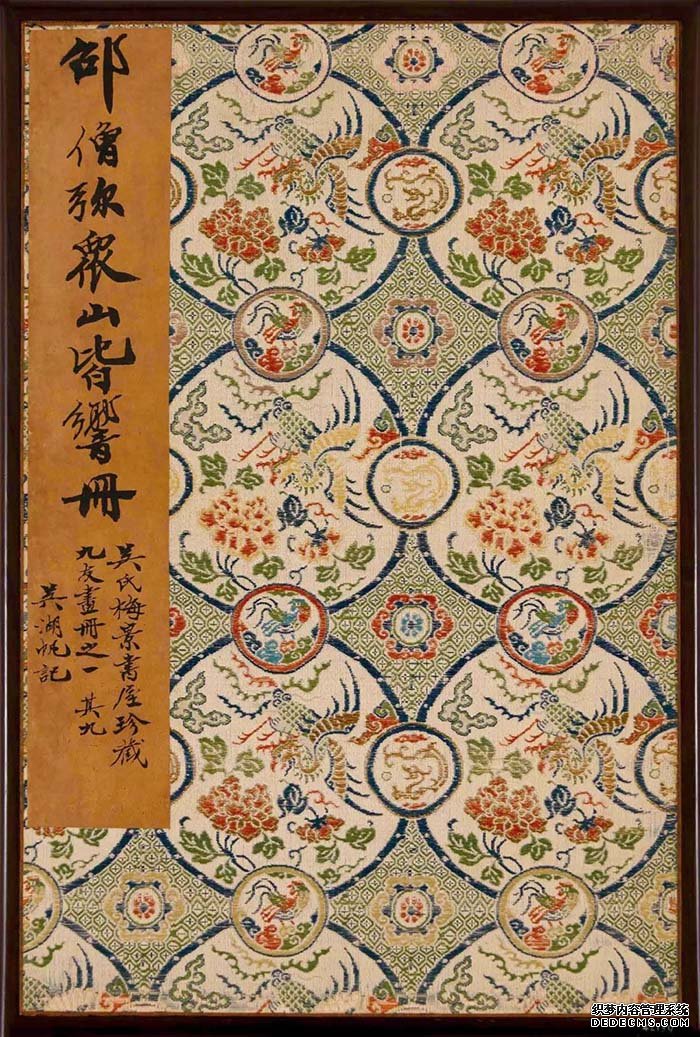 邵僧弥众山皆響冊
吳氏梅景書屋珍藏
九友畫冊之一 其九
吳湖帆記
织梦内容管理系统
DEDECMS.COM